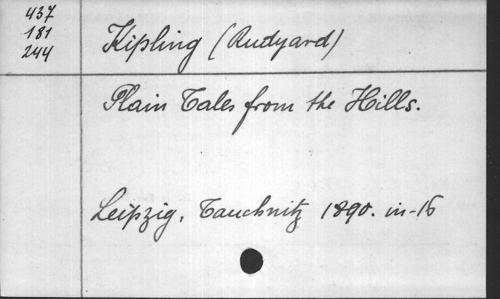 437
181
244
Kipling (Rudyard)
Plain Tales from the Hills.
Leipzig, Tauchnitz 1890. in-16